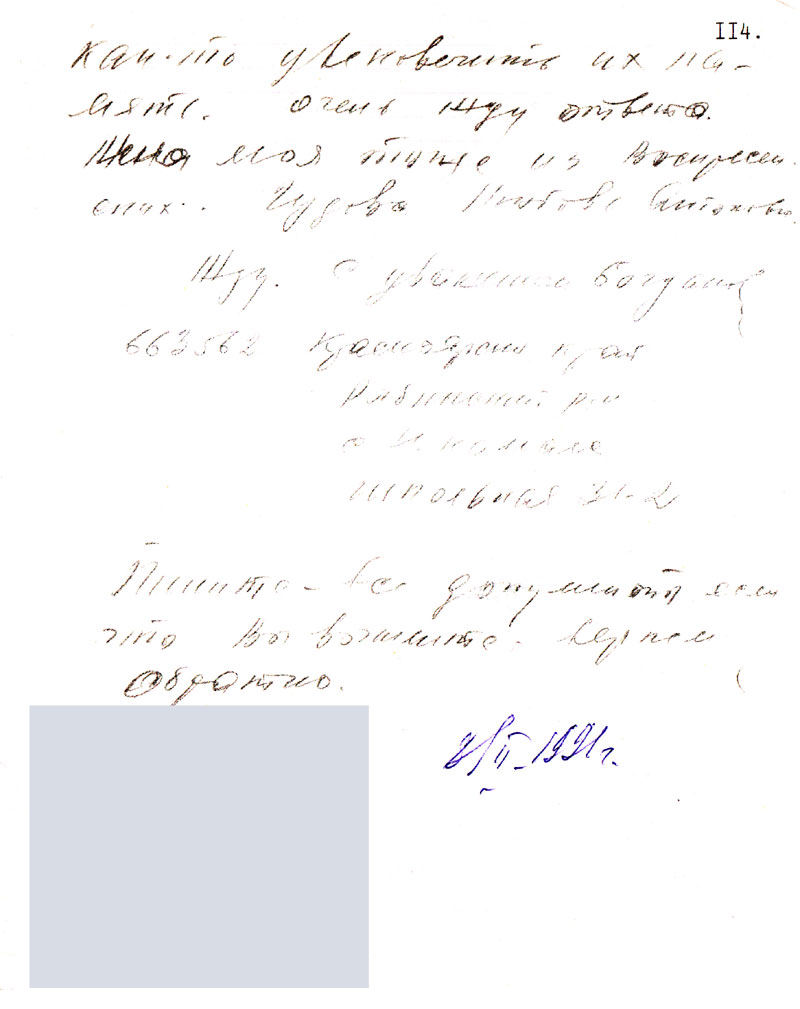 II4.
как-то увековечить их па-
мять. очень жду ответа.
Жена моя тоже из Воскресен
ских. Чудова Антоновн.
Жду. С уважением Богданов
663562 Красноярский край
Рыбинский р-н
с
Школьная 31-2
Пишите - все документы если
что Вы возьмите. вернем
Обратно.
II-1991г.